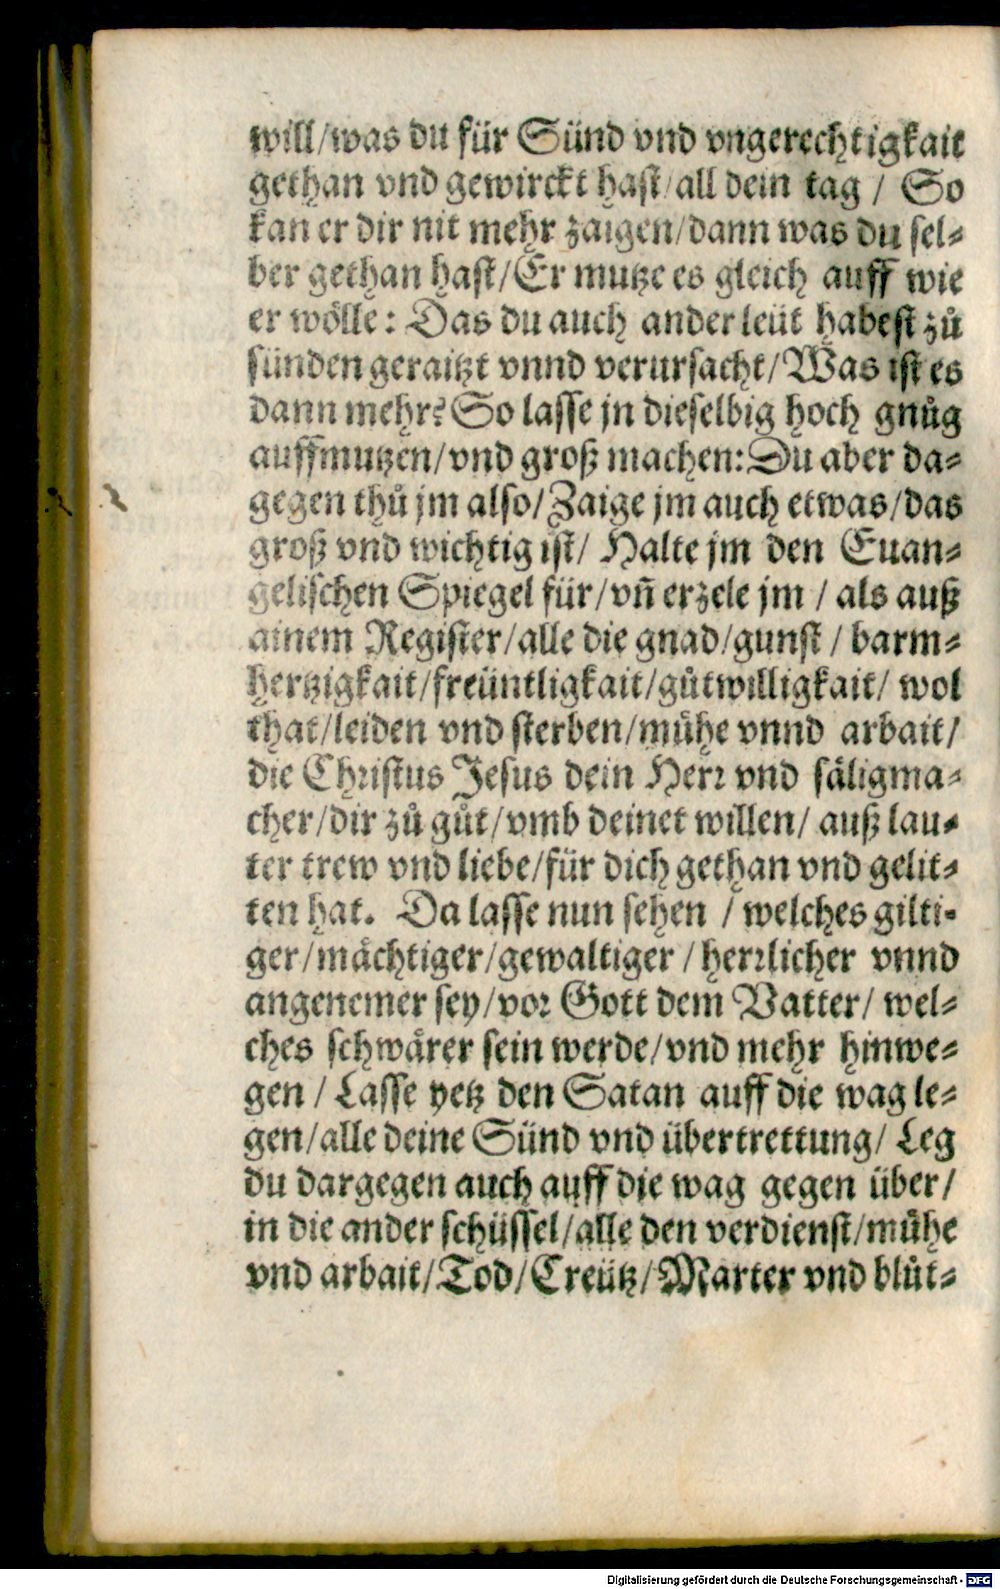 will/was du für Sünd vnd vngerechtigkait
gethan vnd gewirckt hast/all dein tag / So
kan er dir nit mehr zaigen/dann was du sel-
ber gethan hast/Er mutze es gleich auff wie
er wölle: Das du auch ander leüt habest zů
sünden geraitzt vnnd verursacht/Was ist es
dann mehr? So lasse jn dieselbig hoch gnůg
auffmutzen/vnd groß machen: Du aber da-
gegen thů jm also/Zaige jm auch etwas/das
groß vnd wichtig ist/ Halte jm den Euan-
gelischen Spiegel für/vñ erzele jm / als auß
ainem Register/alle die gnad/gunst / barm-
hertzigkait/freüntligkait/gůtwilligkait/ wol
that/leiden vnd sterben/mühe vnnd arbait/
die Christus Jesus dein Herr vnd säligma-
cher/dir zů gůt/vmb deinet willen/ auß lau-
ter trew vnd liebe/für dich gethan vnd gelit-
ten hat. Da lasse nun sehen / welches gilti-
ger/mächtiger/gewaltiger / herrlicher vnnd
angenemer sey/vor Gott dem Vatter/ wel-
ches schwärer sein werde/vnd mehr hinwe-
gen / Lasse yetz den Satan auff die wag le-
gen/alle deine Sünd vnd übertrettung/ Leg
du dargegen auch auff die wag gegen über/
in die ander schüssel/alle den verdienst/mühe
vnd arbait/Tod/Creütz/Marter vnd blůt-
Digitalisierung gefördert durch die Deutsche Forschungsgemeinschaft - DFG